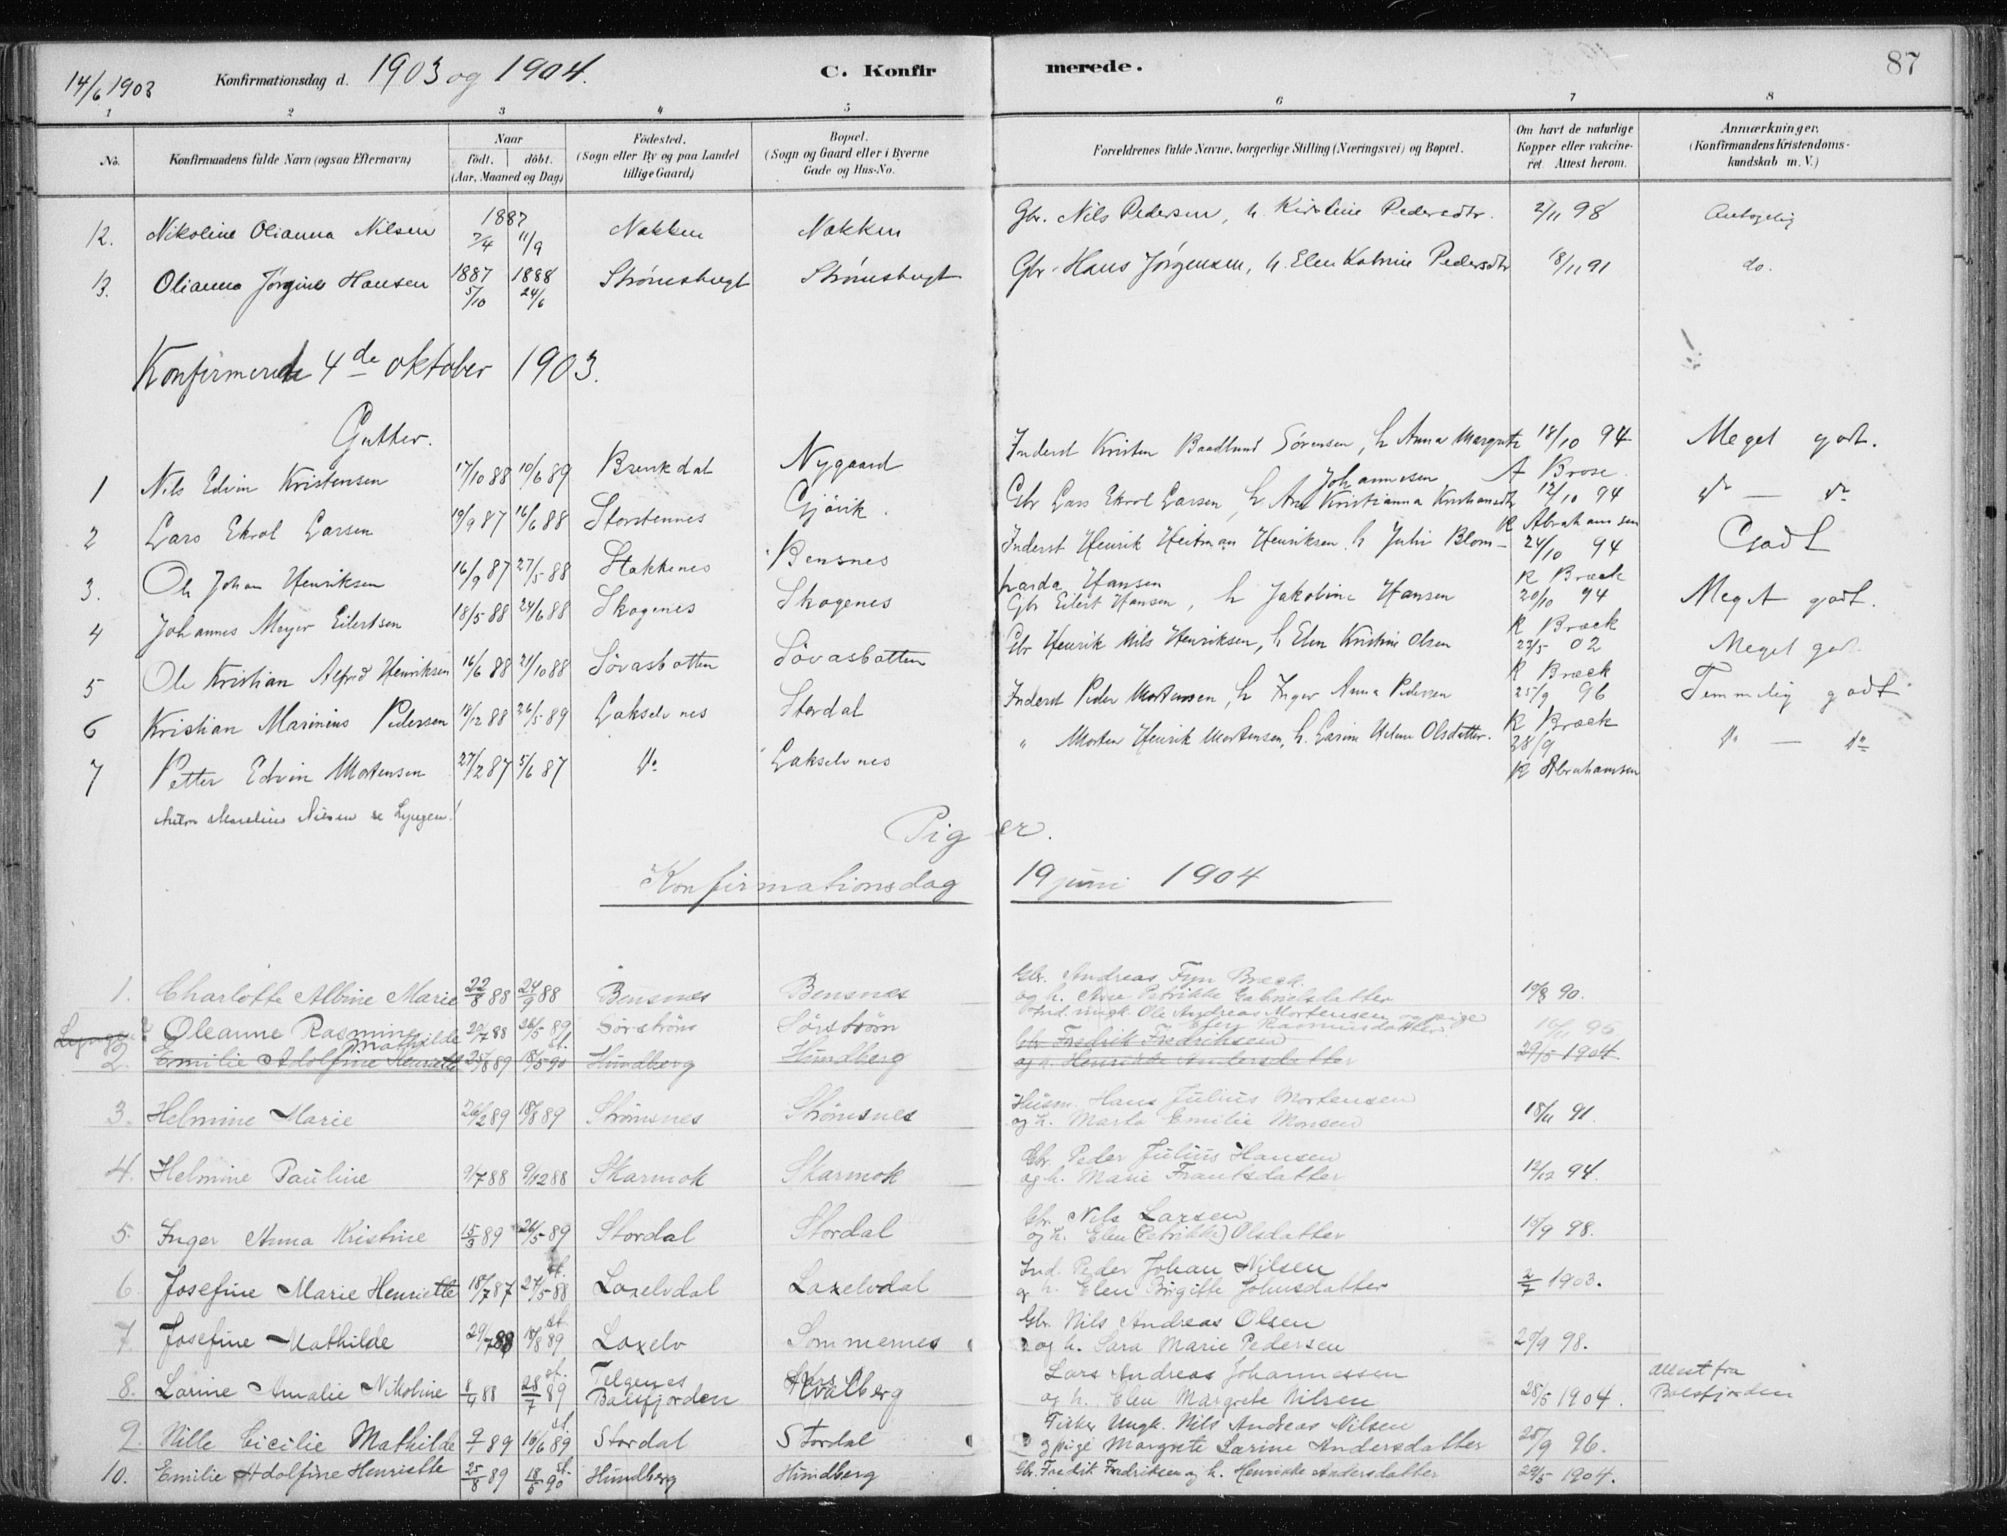 14/6 1903 Konfirmationsdag d. 1903 og 1904. C. Konfirmerede. 87
1 2 3 4 5 6 7 8
No. Konfirmandens fulde Navn (ogsaa Efternavn) Naar födt. döbt. (Aar, Maaned og Dag) Födested. (Sogn eller By og paa Landet tillige Gaard) Bopæl. (Sogn og Gaard eller i Byerne Gade og Hus-No. Forældrenes fulde Navne, borgerlige Stilling (Næringsvei) og Bopæl. Om havt de naturlige Kopper eller vakcineret Attest herom. Anmærkninger. (Konfirmandens Kristendomskundskab m. V.)
12. Nikoline Olianna Nilsen 1887 7/4 11/9 Nakken Nakken Gbr. Nils Pedersen, h. Kirstine Pedersdtr. 2/11 98 Antagelig
13. Olianna Jørgine Hansen 1887 5/10 1888 24/6 Strømsbugt Strømsbugt Gbr. Hans Jørgensen, h. Elen Katrine Pedersdtr 18/11 91 do.
Konfirmerede 4de oktober 1903.
Gutter.
1 Nils Edvin Kristensen 17/10 88 10/6 89 Brenkdal Nygaard Inderst Kristen Baadlund Sørensen, h Anna Margrete Johannesen 18/10 94 A Brose Meget godt.
2 Lars Ekrol Larsen 19/9 87 16/6 88 Storstennes Gjövik. Gbr Lars Ekrol Larsen, h Ane Kristianna Kristiansdtr 12/10 94 R Abrahamsen do — do
3. Ole Johan Henriksen 16/9 87 27/5 88 Stakkenes Bensnes Inderst Henrik Heitman Henriksen, h Julie Blom- Hansen 24/10 94 R Bræck Godt
4 Johannes Meyer Eilertsen 18/5 88 24/6 88 Skogenes Skogenes Gbr Eilert Hansen, h Jakobine Hansen 20/10 94 R Bræck Meget godt.
5 Ole Kristian Alfred Henriksen 16/6 88 21/10 88 Sövasbotten Sövasbotten Gbr Henrik Nils Henriksen, h Elen Kristine Olsen 22/5 02 R Bræck Meget godt.
6 Kristian Marinius Pedersen 12/12 88 26/5 89 Lakselvnes Stordal Inderst Peder Mortensen, h Inger Anna Pedersen 25/9 96 R Bræck Temmelig godt
7 Petter Edvin Mortensen 27/2 87 5/6 87 do Lakselvnes " Morten Henrik Mortensen, h. Larine Helene Olsdatter. 28/9 R Abrahamsen do — do
Anton Marelius Nilsen se Lyngen!
Piger.
Konfirmationsdag 19 juni 1904
1. Charlotte Albine Marie 22/8 88 24/9 88 Bensnes Bensnes Gbr. Andreas Fyn Bræck og h. Ane Petrikke Gabrielsdatter 10/8 90.
Lyngen? Oleanne Rasmine Mathilde 20/7 88 26/5 89 Sörström Sörström Ind. ungk. Ole Andreas Mortensen og pige Rasmusdatter 16/11 96
2. Emilie Adolfine Henriette 25/8 89 18/5 90 Hundberg Hundberg Gbr. Fredrik Fredriksen og h. Henrikke Andersdatter 29/5 1904.
3. Helmine Marie 26/2 89 18/8 89 Strömsnes Strömsnes Husm. Hans Julius Mortensen og h. Marta Emilie Monsen 18/11 91.
4. Helmine Pauline 9/7 88 9/12 88 Skarmok Skarmok Gbr. Peder Julius Hansen og h. Marie Frantsdatter 12/12 94.
5. Inger Anna Kristine 15/3 89 26/5 89 Stordal Stordal Gbr. Nils Larsen og h. Elen (Petrikke) Olsdatter 15/9 98.
6. Josefine Marie Henriette 18/7 87 27/5 88 Laxelvdal Laxelvdal Ind. Peder Johan Nilsen og h. Elen Birgitte Johnsdatter 2/7 1903.
7. Josefine Mathilde 29/7 88 18/8 89 Laxelv Sommernes Gbr. Nils Andreas Olsen og h. Sara Marie Pedersen 29/9 98.
8. Larine Amalie Nikoline 8/9 88 28/7 89 Telgenes Balsfjorden Kvalberg Lars Andreas Johannessen og h. Elen Margrete Nilsen 28/5 1904. Attest fra Balsfjorden
9. Nille Cicilie Mathilde 9/7 89 10/6 89 Stordal Stordal Fisker Ungk. Nils Andreas Nilsen og pige Margrete Larine Andersdatter 25/9 96.
10. Emilie Adolfine Henriette 25/8 89 18/5 90 Hundberg Hundberg Gbr. Fredrik Fredriksen og h. Henrikke Andersdatter 29/5 1904.